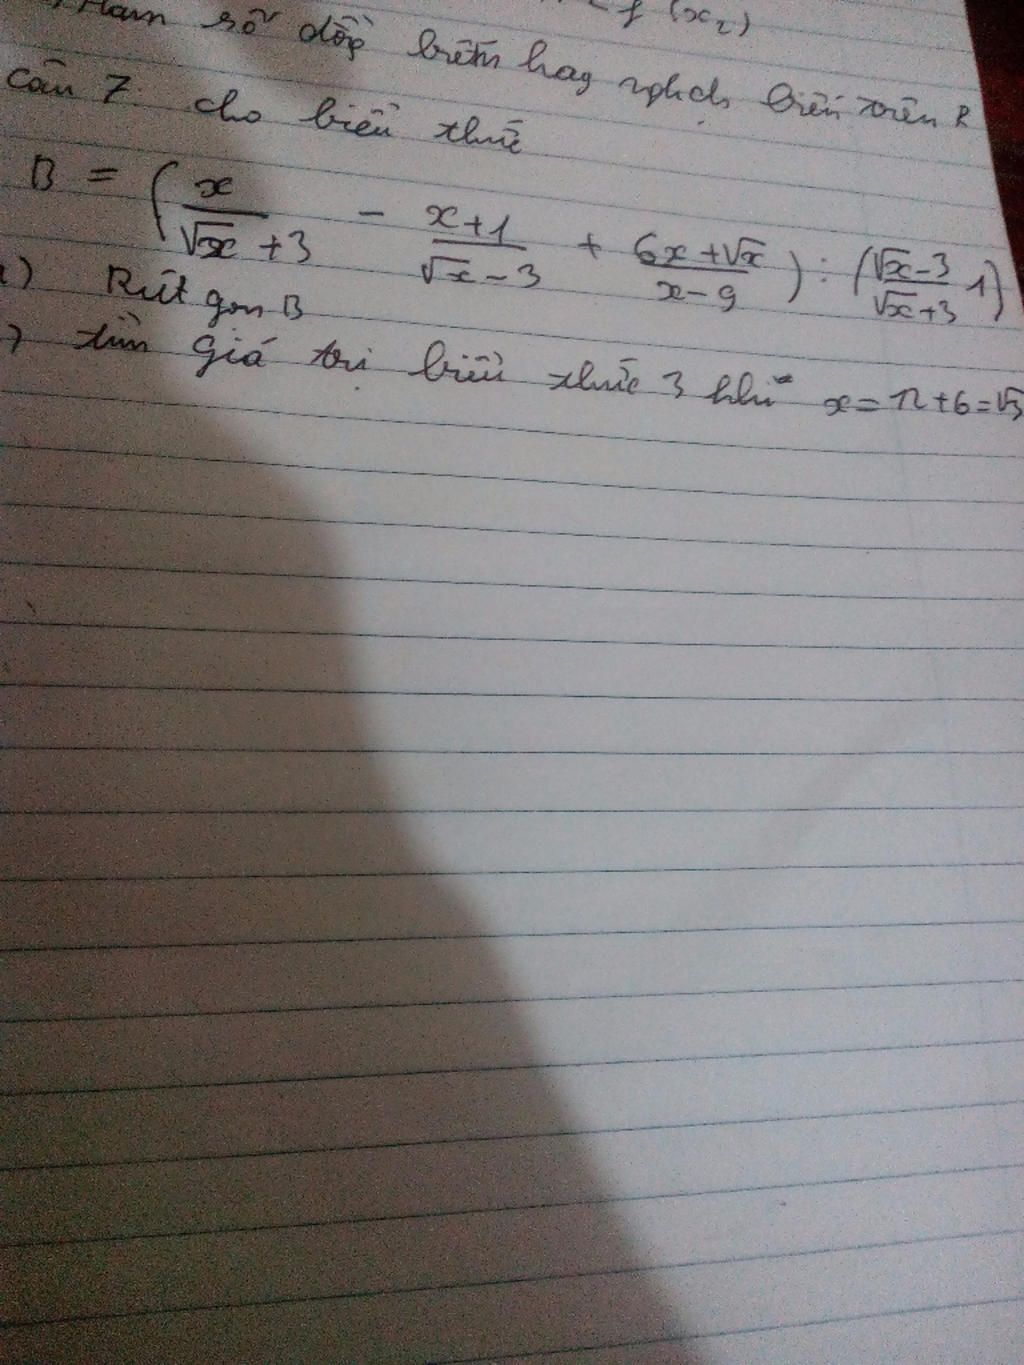 f(x₂)
Hàm số đồng biến hay nghịch biến trên R
câu 7: cho biểu thức
B = (x/(√x + 3) - (x+1)/(√x - 3) + (6x+√x)/(x-9)) : ((√x-3)/(√x+3) 1)
) Rút gọn B
) tìm giá trị biểu thức 3 khi x = 12+6=√3